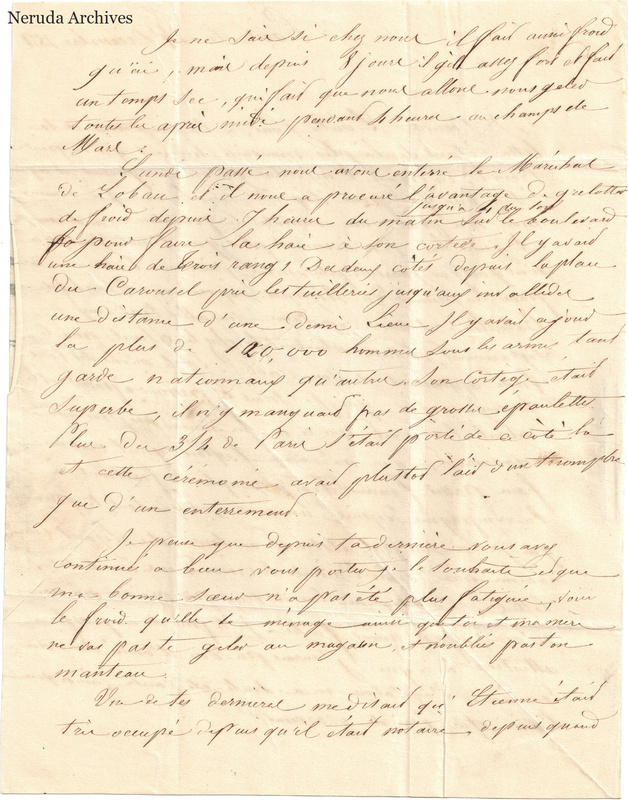 Neruda Archives
Je ne sais si chez nous il fait aussi froid
qu'ici, mais depuis 8 jours il gèle assez fort et fait
un temps sec, qui fait que nous allons nous geler
toutes les après midi pendant 4 heures au champs de
Mars.
Lundi passé nous avons enterré le Maréchal
de Lobau et il nous a procuré l'avantage de grelotter
jusqu'à 4 du soir
de froid depuis 7 heures du matin sur le boulevard
pour faire la haie à son cortège. Il y avait
une haie de trois rangs Des deux côtés depuis la place
du Carousel près les tuilleries jusqu'aux invalides
une distance d'une demi Lieue Il y avait
la plus de 120,000 hommes sous les armes, tant
garde nationnaux qu'autres. Son cortège était
superbe, il n'y manquait pas de grosses épaulettes
Plus des 3/4 de Paris s'était porté de ce côté là
et cette cérémonie avait plustot l'air d'un triomphe
que d'un enterrement
Je pense que depuis ta dernière vous avez
continué a bien vous porter je le souhaite et que
ma bonne sœur n'a pas été plus fatiguée, vu
le froid qu'elle se ménage ainsi que toi et ma mère
ne vas pas te geler au magasin, et n'oublies pas ton
manteau.
Une de tes dernières me disait qu'Etienne était
très occupé depuis qu'il était notaire, depuis quand